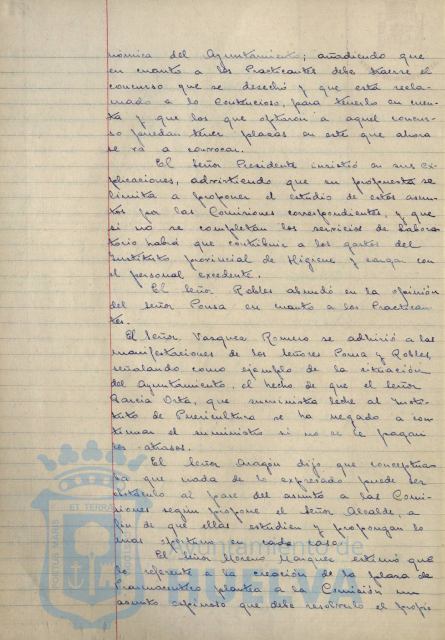 nómica del Ayuntamiento; añadiendo que
en cuanto a los Practicantes debe traerse el
concurso que se desechó y que está recla-
mado a lo Contencioso, para tenerlo en cuen-
ta y que los que optaron a aquel concur-
so puedan tener plazas en este que ahora
se va a convocar.
El Señor Presidente insistió en sus ex-
plicaciones, advirtiendo que su propuesta se
limita a proponer el estudio de estos asun-
tos por las Comisiones correspondientes, y que
si no se completan los servicios de labora-
torio habrá que contribuir a los gastos del
Instituto provincial de Higiene y cargar con
el personal excedente.
El Señor Robles abundó en la opinión
del Señor Pousa en cuanto a los Practican-
tes.
El Señor Vazquez Romero se adhirió a las
manifestaciones de los Señores Pousa y Robles,
señalando como ejemplo de la situación
del Ayuntamiento, el hecho de que el Señor
Garcia Orta, que suministra leche al Insti-
tuto de Puericultura se ha negado a con-
tinuar el suministro si no se le pagan
los atrasos.
El Señor Aragón dijo que conceptua-
ba que nada de lo expresado puede ser
obstáculo al pase del asunto a las Comi-
siones según propone el Señor Alcalde, a
fin de que ellas estudien y propongan lo
mas oportuno en cada caso.
El Señor Moreno Marquez estimó que
lo referente a la creación de la plaza de
Farmaceutico plantea a la Comisión un
asunto espinoso que debe resolverlo el propio
Ayuntamiento de
HUELVA